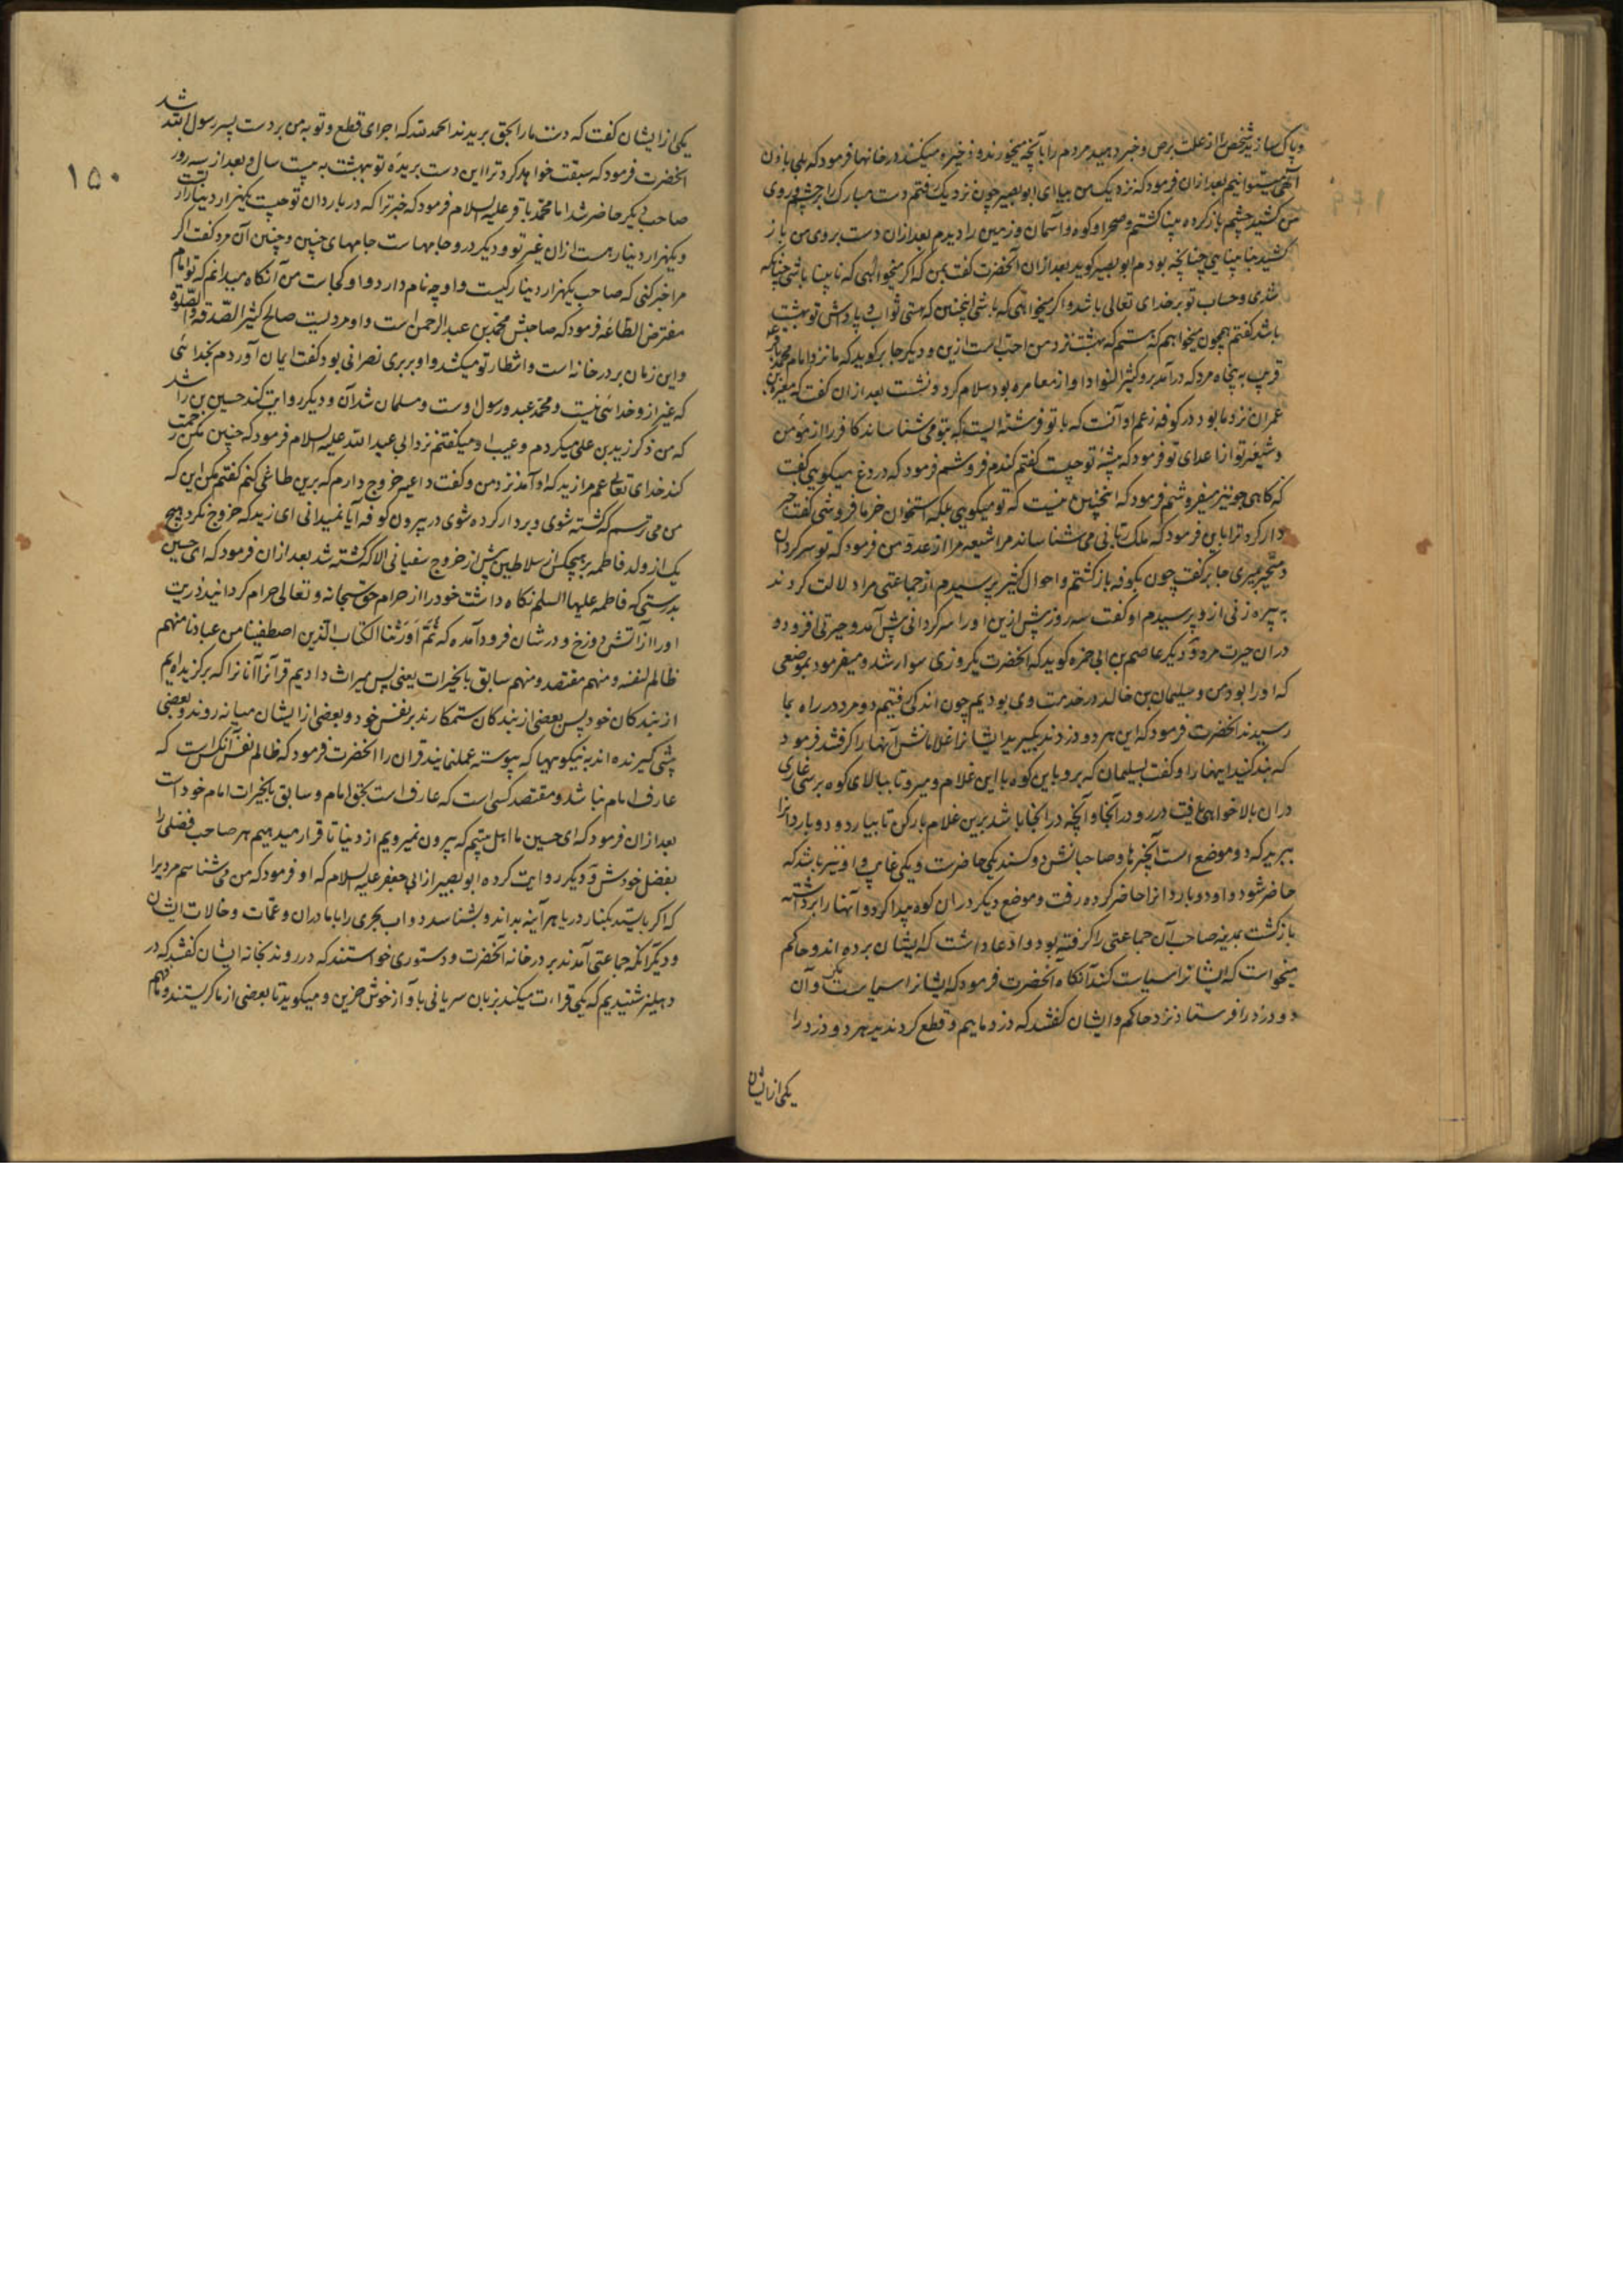 و پاک سازید شخص را از علت برص و خبر دهید مردم را بآنچه میخورند و ذخیره میکنند در خانها فرمود که بلی باذن
آلهی میتوانیم بعد از ان فرمود که نزدیک من بیا ای ابو بصیر چون نزدیک رفتم دست مبارک را بر چشم و روی
من کشید چشم باز کرده بینا گشتم و صحرا و کوه و آسمان و زمین را دیدم بعد از ان دست بر روی من باز
کشید چنانچه بودم ابو بصیر کوید بعد از ان آنحضرت گفت بمن که اگر میخواهی که نابینا باشی چنانکه
شدی و حساب تو بر خدای تعالی باشد و اگر میخواهی که باشی اینچنین که هستی ثواب و پاداش تو بهشت
باشد گفتم همچون میخواهم که هستم که بهشت نزد من احب است ازین و دیگر جابر کوید که ما نزد امام محمد باقر
قریب به پنجاه مرد که در آمد برو کثیر النوا و او از مغامره بود سلام کرد و نشست بعد از ان گفت که مغیرة بن
عمران نزد ما بود در کوفه زعم او آنست که با تو فرشته ایست که بتو می شناساند کافر را از مؤمن
و شیعه تو از اعدای تو فرمود که پیشه تو چیست گفتم گندم فروشم فرمود که دروغ میگویی گفت
که گاهی جو نیز میفروشم فرمود که اینچنین نیست که تو میگویی بلکه استخوان خرما فروشی گفت خبر
دار کرد ترا باین فرمود که ملک ربانی می شناساند مرا شیعه مرا از عدو من فرمود که تو سر گردان
و متحیر میری جابر گفت چون بکوفه باز گشتم و احوال کثیر پرسیدم از جماعتی مرا دلالت کردند
به پیره زنی ازو پرسیدم او گفت سه روز پیش ازین او را سرگردانی پیش آمد و حیرتی افزود و
در ان حیرت مرد و دیگر عاصم بن ابی حمزه کوید که آنحضرت یکروزی سوار شد و میفرمود بموضعی
که او را بود من و سلیمان بن خالد در خدمت وی بودیم چون اندکی رفتیم دو مرد در راه بما
رسیدند آنحضرت فرمود که این هر دو دزدند بگیرید ایشانرا غلامانش آنها را گرفتند فرمود
که بند کنید اینها را و گفت بسلیمان که برو باین کوه با این غلام و میرو تا ببالای کوه برسی غاری
در ان بالا خواهی یافت در رو در آنجا و آنچه در انجا باشد برین غلام بار کن تا بیارد و دو باردانرا
ببرید که دو موضع است آنچیزها و صاحبانش دو کسند یکی حاضرست و یکی غایب و او نیز باشد که
حاضر شود و او دو باردانرا حاضر کرده رفت و موضع دیگر در ان کوه پیدا کرد و آنها را برداشته
باز گشت بمدینه صاحب آن جماعتی را گرفته بود و ادعا داشت که ایشان برده اند و حاکم
میخواست که ایشانرا سیاست کند آنگاه آنحضرت فرمود که ایشانرا سیاست مکن و آن
دو دزد را فرستاد نزد حاکم و ایشان گفتند که دزد ماییم و قطع کردند ید هر دو دزد را
یکی از ایشان
۱۵۰
یکی از ایشان گفت که دست ما را بحق بریدند الحمد لله که اجرای قطع و توبه من بر دست پسر رسول الله شد
آنحضرت فرمود که سبقت خواهد کرد ترا این دست بریده تو ببهشت به بیست سال و بعد از سه روز
صاحب دیگر حاضر شد امام محمد باقر علیه السلام فرمود که خبر ترا که در باردان تو چیست یکهزار دینار از تست
و یکهزار دینار هست از ان غیر تو و دیگر درو جامهاست جامهای چنین و چنین آن مرد گفت اگر
مرا خبر کنی که صاحب یکهزار دینار کیست و او چه نام دارد و او کجاست من آنگاه میدانم که تو امام
مفترض الطاعه فرمود که صاحبش محمد بن عبد الرحمن است و او مردیست صالح کثیر الصدقه و الصلوة
و این زمان بر در خانه است و انتظار تو میکشد و او بربری نصرانی بود گفت ایمان آوردم بخدائی
که غیر ازو خدائی نیست و محمد عبد و رسول اوست و مسلمان شد آن و دیگر روایت کند حسین بن راشد
که من ذکر زید بن علی میکردم و عیب او میگفتم نزد ابی عبد الله علیه السلام فرمود که چنین مکن رحمت
کند خدای تعالی عم مرا زید که او آمد نزد من و گفت داعیه خروج دارم که برین طاغی کنم گفتم مکن این که
من می ترسم که کشته شوی و بردار کرده شوی در بیرون کوفه آیا نمیدانی ای زید که خروج نکرد هیچ
یک از ولد فاطمه بر هیچکس از سلاطین پیش از خروج سفیانی الا که کشته شد بعد از ان فرمود که ای حسین
بدرستی که فاطمه علیها السلم نگاه داشت خود را از حرام حق سبحانه و تعالی حرام گردانید ذریت
او را از آتش دوزخ و در شان فرود آمده که ثُمَّ اَوْرَثْنَا الکتاب الذین اصطفینا من عبادنا منهم
ظالم لنفسه و منهم مقتصد و منهم سابق بالخیرات یعنی پس میراث دادیم قرآنرا آنانرا که برگزیده ایم
از بندگان خود پس بعضی از بندگان ستمکارند بر نفس خود و بعضی از ایشان میانه روند و بعضی
پیشی گیرنده اند به نیکوییها که پیوسته عمل نمایند قران را آنحضرت فرمود که ظالم نفس آنکس است که
عارف امام نباشد و مقتصد کسی است که عارف است بحق امام و سابق بالخیرات امام خود است
بعد از ان فرمود که ای حسین ما اهل بیتیم که بیرون نمیرویم از دنیا تا قرار میدهیم هر صاحب فضلی را
بفضل خودش و دیگر روایت کرده ابو بصیر از ابی جعفر علیه السلام که او فرمود که من می شناسم مردیرا
که اگر بایستد بکنار دریا هر آینه بداند و بشناسد دواب بحری را با مادران و عمات و خالات ایشان
و دیگر آنکه جماعتی آمدند بر در خانه آنحضرت و دستوری خواستند که در روند بخانه ایشان گفتند که در
دهلیز شنیدیم که یکی قراءت میکند بزبان سریانی بآواز خوش حزین و میگوید تا بعضی از ما گریستند و ما